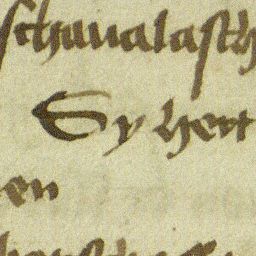 schaualasth
Sy hett
en